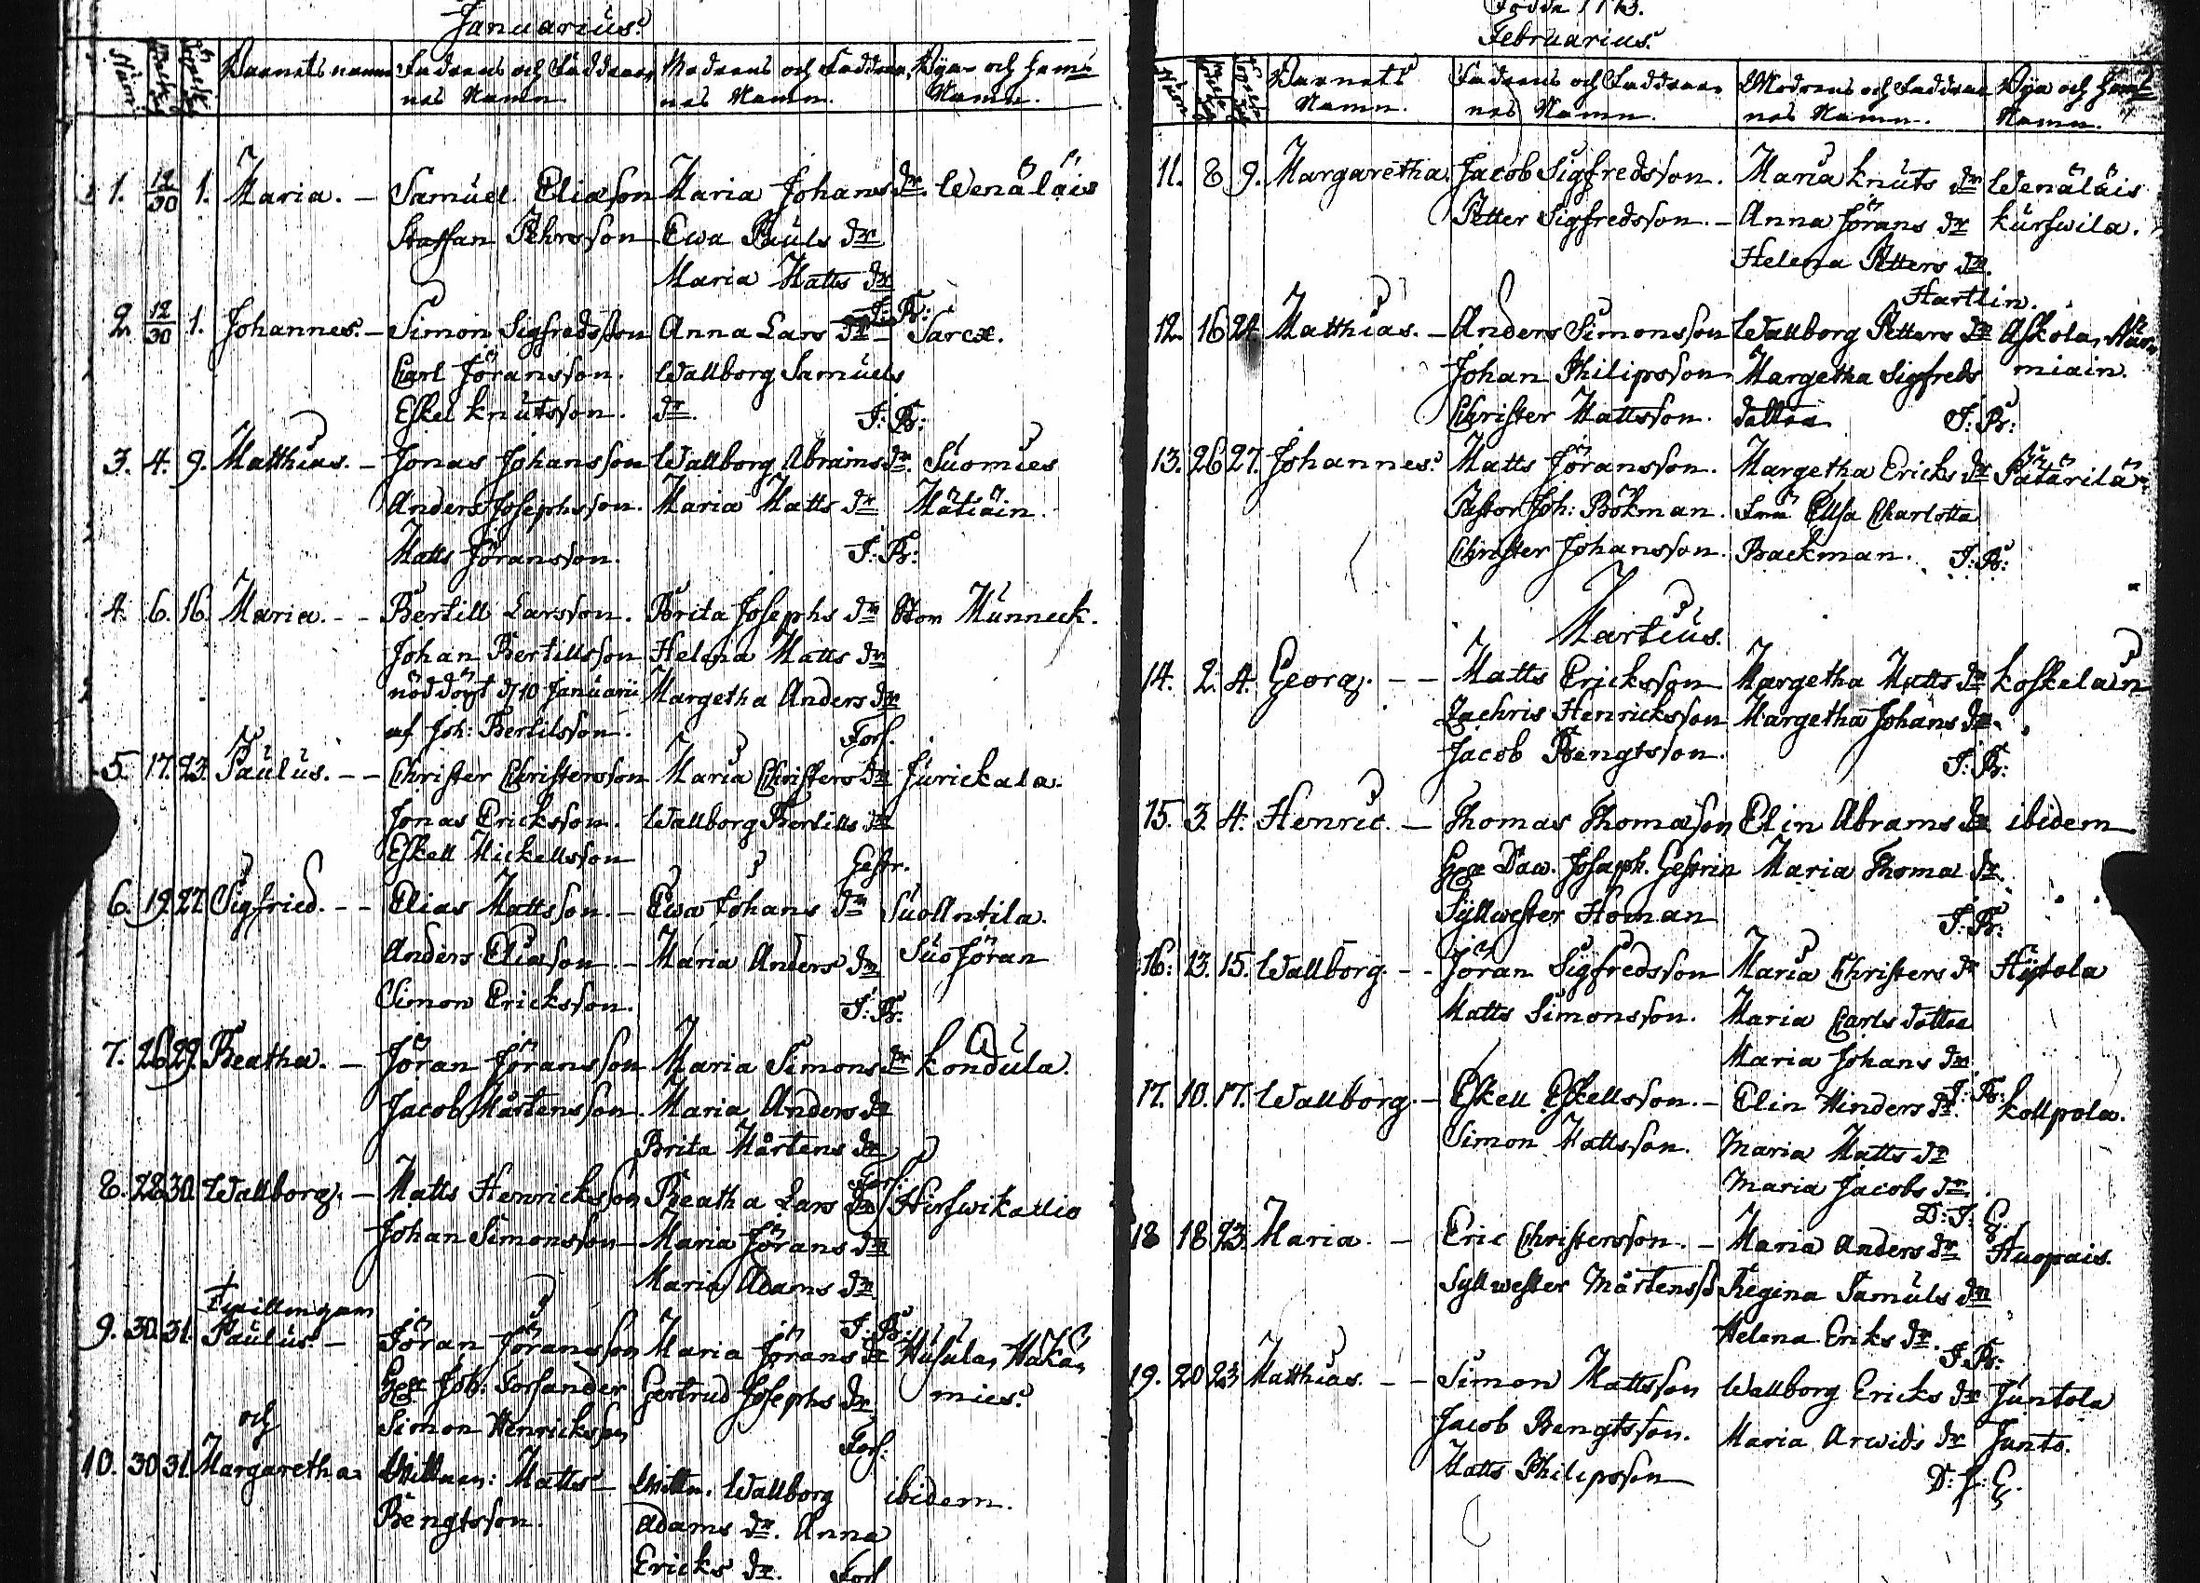 Januarius.
Num: Barnets namn Fadrens och Faddrarnes Namn Modrens och Faddrarnes Namn. Bya- och Hems Namn.
1. 12/30 1. Maria. – Samuel Eliason Maria Johans dr. Wenäläis
Staffan Pehrsson Ewa Pauls dr
Maria Matts dr
J: B:
2. 12/30 1. Johannes. – Simon Sigfredsson Anna Lars dr – Sarex.
Carl Jöransson. Wallborg Samuels
Eskel Knutsson. dr. J: B:
3. 4. 9. Matthias. – Jonas Johansson Wallborg Abrams dr. Suomies
Anders Josephsson. Maria Matts dr Mätiäin.
Matts Jöransson. J: B:
4. 6. 16. Maria. - - Bertill Larsson. Brita Josephs dr Stor Munneck.
Johan Bertillsson Helena Matts dr
nöddöpt d 10 Januarii Margetha Anders dr
af Joh: Bertilsson. Fors.
5. 17. 23. Paulus. - - Christer Christersson Maria Christers dr Jurickala.
Jonas Ericksson. Wallborg Bertills dr
Eskell Mickellsson Gestr.
6. 19. 27. Sigfried. - - Elias Mattsson. – Ewa Johans dr Suollntila.
Anders Eliason. – Maria Anders dr Suo Jöran
Simon Ericksson. J: B:
7. 26 29. Beatha. – Jöran Jöransson Maria Simons dr Kondula.
Jacob Mårtensson. Maria Anders dr
Brita Mårtens dr
Fors.
8. 28 30. Wallborg. – Matts Henricksson Beatha Lars dr Hirswikallio
Johan Simonsson – Maria Jörans dr
Maria Adams dr
Twillingar J: B:
9. 30. 31. Paulus. – Jöran Jöransson Maria Jörans dr Husula, Haka,
Joh: Forsander Gertrud Josephs dr mies.
Simon Henricksson
och Fors.
10. 30 31. Margaretha Wittnen: Matts – Wittn. Wallborg ibidem.
Bengtsson. Adams dr. Anna
Ericks dr. Fors
Födde 1773.
Februarius.
Num Barnets Namn. Fadrens och Faddrarnes Namn. Modrens och Faddrarnes Namn. Bya och Hems Namn.
11. 8 9. Margaretha. Jacob Sigfredsson. Maria Knuts dr Wenäläis
Petter Sigfredsson. – Anna Jörans dr Kurswila.
Helena Petters dr.
Hartlin.
12. 16 24. Matthias. – Anders Simonsson Wallborg Petters dr Askola,
Johan Philipsson Margetha Sigfreds miain.
Christer Mattsson. dotter J: B:
13. 26 27. Johannes. Matts Jöransson. Margetha Ericks dr Pätärilä
Pastor Joh: Bökman. Fru Elsa Charlotta
Christer Johansson. Backman. J: B:
Martius.
14. 2. 4. Georg. - - Matts Ericksson Margetha Matts dr Koskelain
Zachris Henricksson Margetha Johans dr.
Jacob Bengtsson. J: B:
15. 3. 4. Henric. – Thomas Thomason Elin Abrams dr ibidem
Daw. Joseph. Gestrin Maria Thomæ dr.
Syllwester Homan J: B:
16. 13. 15. Wallborg. - - Jöran Sigfredsson Maria Christers dr Hytola
Matts Simonsson. Maria Carls dotter
Maria Johans dr.
J: B:
17. 10. 17. Wallborg. – Eskell Eskellsson. – Elin Hinders dr. Kollpola.
Simon Mattsson. Maria Matts dr
Maria Jacobs dr.
D: J: G.
18 18 23. Maria. – Eric Christersson. – Maria Anders dr Huopais.
Syllwester Mårtensso Regina Samuls dr
Helena Eriks dr.
J. B:
19. 20 23 Matthias. - - Simon Mattsson Wallborg Ericks dr Juntola
Jacob Bengtsson. Maria Arwids dr Junto.
Matts Philipsson D: J: G.